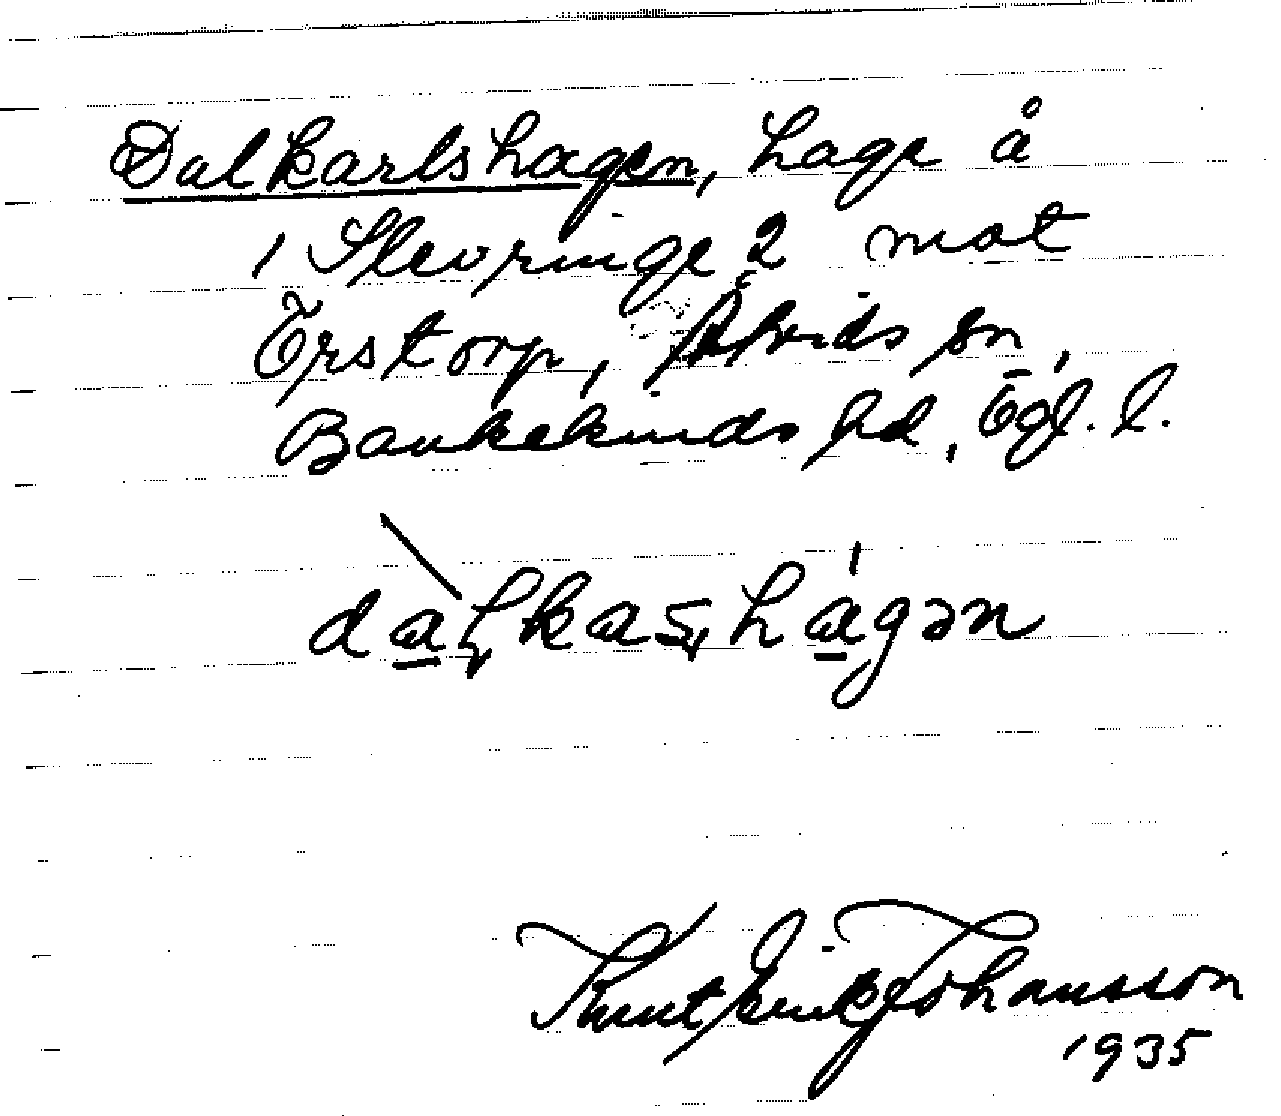 Dalkarlshagen, hage å
1 Slevringe 2 mot
Örstorp, Åtvids sn,
Bankekinds hd, Ögl. l.
dalkashagən
Knut Erik Johansson
1935